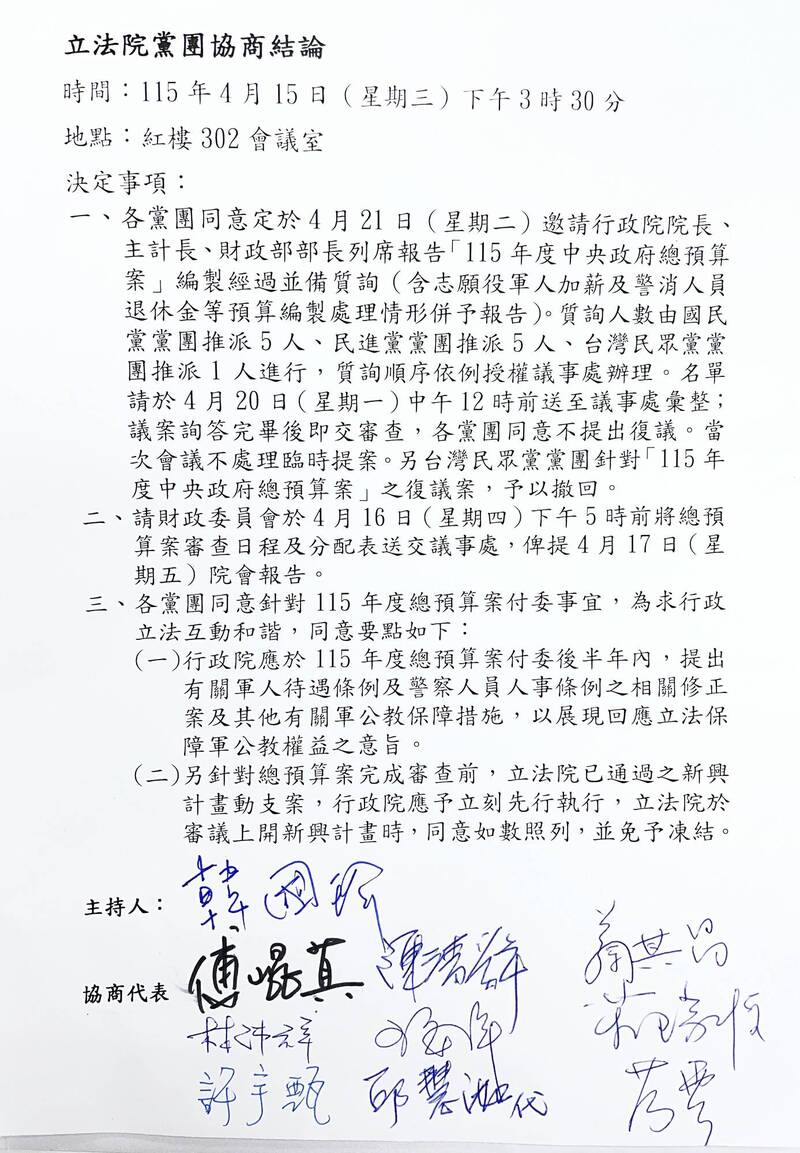 立法院黨團協商結論
時間：115 年 4 月 15 日（星期三）下午 3 時 30 分
地點：紅樓 302 會議室
決定事項：
一、各黨團同意定於 4 月 21 日（星期二）邀請行政院院長、
主計長、財政部部長列席報告「115 年度中央政府總預算
案」編製經過並備質詢（含志願役軍人加薪及警消人員
退休金等預算編製處理情形併予報告）。質詢人數由國民
黨黨團推派 5 人、民進黨黨團推派 5 人、台灣民眾黨黨
團推派 1 人進行，質詢順序依例授權議事處辦理。名單
請於 4 月 20 日（星期一）中午 12 時前送至議事處彙整；
議案詢答完畢後即交審查，各黨團同意不提出復議。當
次會議不處理臨時提案。另台灣民眾黨黨團針對「115 年
度中央政府總預算案」之復議案，予以撤回。
二、請財政委員會於 4 月 16 日（星期四）下午 5 時前將總預
算案審查日程及分配表送交議事處，俾提 4 月 17 日（星
期五）院會報告。
三、各黨團同意針對 115 年度總預算案付委事宜，為求行政
立法互動和諧，同意要點如下：
(一)行政院應於 115 年度總預算案付委後半年內，提出
有關軍人待遇條例及警察人員人事條例之相關修正
案及其他有關軍公教保障措施，以展現回應立法保
障軍公教權益之意旨。
(二)另針對總預算案完成審查前，立法院已通過之新興
計畫動支案，行政院應予立刻先行執行，立法院於
審議上開新興計畫時，同意如數照列，並免予凍結。
主持人：韓國瑜
協商代表 傅崐萁 陳清龍
林沛祥
許宇甄 邱慧洳代